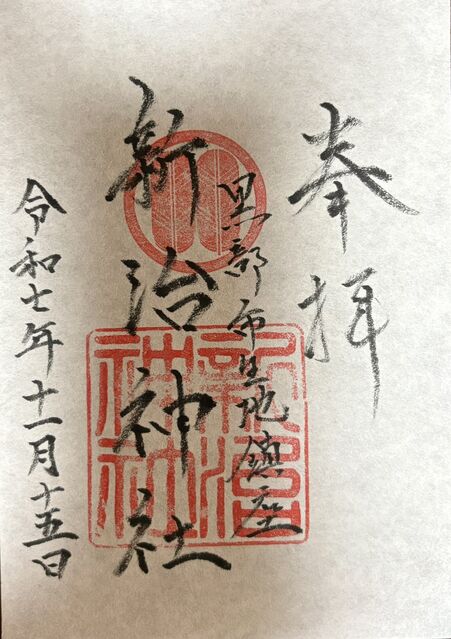 奉拝
黒部市生地鎮座
新治神社
令和七年十一月十五日
新治
神社